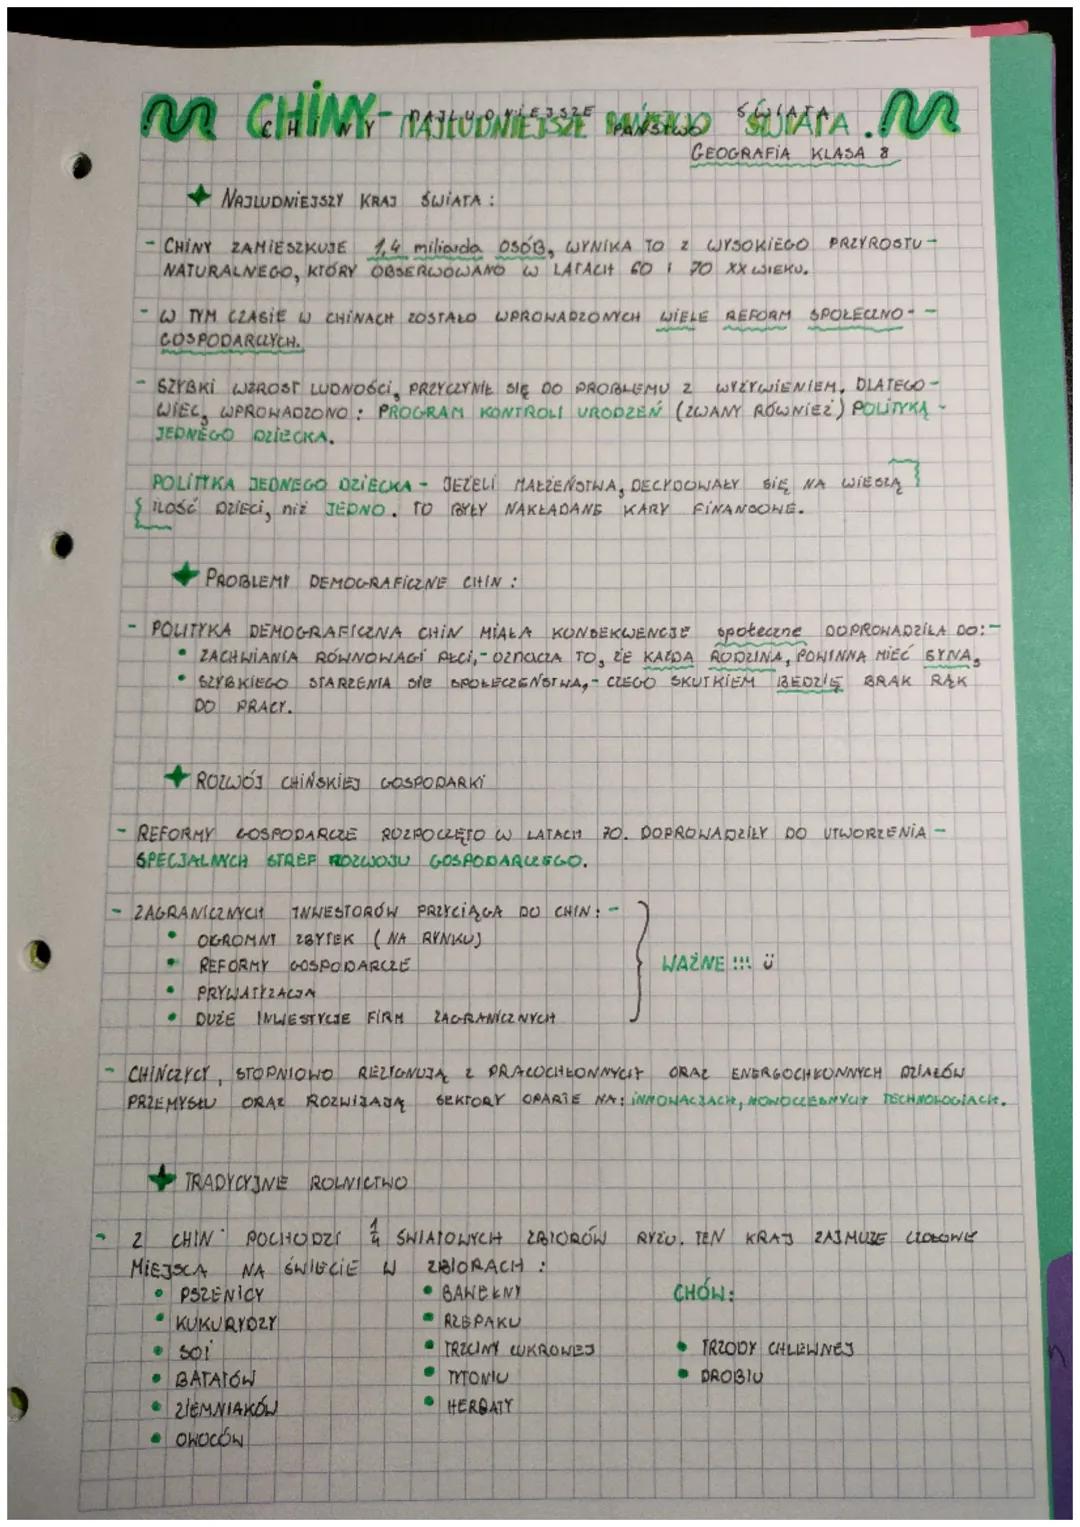 CHINY - NAJLUDNIEJSZE PAŃSTWO ŚWIATA.
GEOGRAFIA KLASA 8
NAJLUDNIEJSZY KRAJ ŚWIATA:
- CHINY ZAMIESZKUJE 1,4 miliarda OSÓB, WYNIKA TO Z WYSOKIEGO PRZYROSTU -
NATURALNEGO, KTÓRY OBSERWOWANO W LATACH 60 I 70 XX WIEKU.
- W TYM CZASIE W CHINACH ZOSTAŁO WPROWADZONYCH WIELE REFORM SPOŁECZNO - -
GOSPODARCZYCH.
- SZYBKI WZROST LUDNOŚCI, PRZYCZYNIŁ SIĘ DO PROBLEMU Z WYŻYWIENIEM. DLATEGO -
WIĘC, WPROWADZONO: PROGRAM KONTROLI URODZEŃ (ZWANY RÓWNIEŻ) POLITYKĄ -
JEDNEGO DZIECKA.
POLITYKA JEDNEGO DZIECKA - JEŻELI MAŁŻEŃSTWA, DECYDOWAŁY SIĘ NA WIĘSZĄ
ILOŚĆ DZIECI, niż JEDNO. TO BYŁY NAKŁADANE KARY FINANSOWE.
PROBLEMY DEMOGRAFICZNE CHIN:
- POLITYKA DEMOGRAFICZNA CHIN MIAŁA KONSEKWENCJE społeczne DOPROWADZIŁA DO: -
• ZACHWIANIA RÓWNOWAGI PŁCI, - OZNACZA TO, ŻE KAŻDA RODZINA, POWINNA MIEĆ SYNA,
• SZYBKIEGO STARZENIA SIĘ SPOŁECZEŃSTWA, - CZEGO SKUTKIEM BĘDZIE BRAK RĄK
DO PRACY.
ROZWÓJ CHIŃSKIEJ GOSPODARKI
- REFORMY GOSPODARCZE ROZPOCZĘTO W LATACH 70. DOPROWADZIŁY DO UTWORZENIA -
SPECJALNYCH STREF ROZWOJU GOSPODARCZEGO.
- ZAGRANICZNYCH INWESTORÓW PRZYCIĄGA DO CHIN: -
• OGROMNY ZBYTEK (NA RYNKU)
• REFORMY GOSPODARCZE
WAŻNE !!! Ü
• PRYWATYZACJA
• DUŻE INWESTYCJE FIRM ZAGRANICZNYCH
- CHIŃCZYCY, STOPNIOWO REZYGNUJĄ Z PRACOCHŁONNYCH ORAZ ENERGOCHŁONNYCH DZIAŁÓW
PRZEMYSŁU ORAZ ROZWIJAJĄ SEKTORY OPARTE NA: INNOWACJACH, NOWOCZESNYCH TECHNOLOGIACH.
TRADYCYJNE ROLNICTWO
- Z CHIN POCHODZI 1/4 ŚWIATOWYCH ZBIORÓW RYŻU. TEN KRAJ ZAJMUJE CZOŁOWE
MIEJSCA NA ŚWIECIE W ZBIORACH:
• PSZENICY
• KUKURYDZY
• SOI
• BATATÓW
• ZIEMNIAKÓW
• OWOCÓW
• BAWEŁNY
• RZEPAKU
• TRZCINY CUKROWEJ
• TYTONIU
• HERBATY
CHÓW:
• TRZODY CHLEWNEJ
• DROBIU